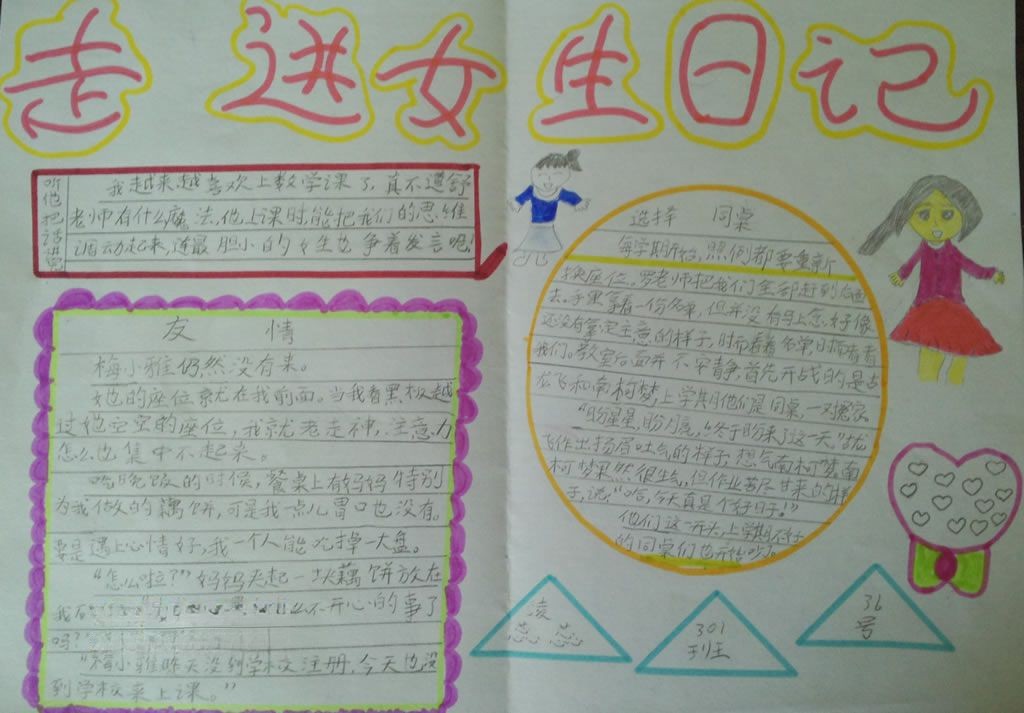 走进女生日记
听他把话讲完
我越来越喜欢上数学课了,真不遭舒
老师有什么魔法,他上课时能把我们的思维
调动起来,连最胆小的女生也争着发言呢!
友 情
梅小雅仍然没有来。
她的座位就在我前面。当我看黑板越
过她空空的座位,我就老走神,注意力
怎么也集中不起来。
吃晚饭的时侯,餐桌上有妈妈特别
为我做的藕饼,可是我一点儿胃口也没有。
要是遇上心情好,我一个人能吃掉一大盘。
“怎么啦?”妈妈夹起一块藕饼放在
我 不开心的事了
吗?”
“梅小雅昨天没到学校注册,今天也没
到学校来上课。”
选择 同桌
每学期开始,照例都要重新
换座位。罗老师把我们全部赶到后面
去。手里拿着一份名单,但并没有马上念,好像
还没有拿定主意的样子,时而看着名单,时而看看
我们。教室后面并不平静,首先开战的是占
龙飞和南柯梦,上学期他们是同桌,一对冤家
“盼星星,盼月亮,终于盼来了这一天。”龙
飞作出扬眉吐气的样子,想气南柯梦,南
柯梦果然很生气,但作出苦尽甘来的样
子,说:“哈,今天真是个好日子!”
他们这一开头,上学期不好
的同桌们也开始吵了。
凌
301
班
36
号